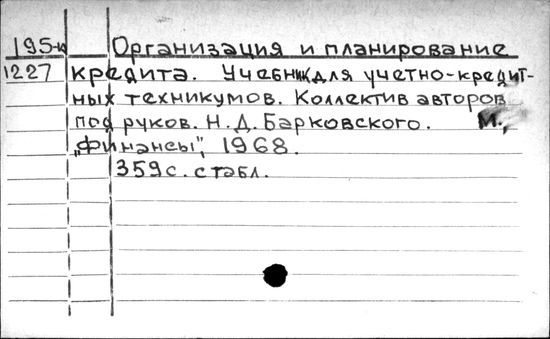 195-к Организация и планирование
1227 кредита. Учебник для учетно-кредит-
ных техникумов. Коллектив авторов
под руков. Н.Д. Барковского. М.,
„Финансы", 1968.
359с. с табл.